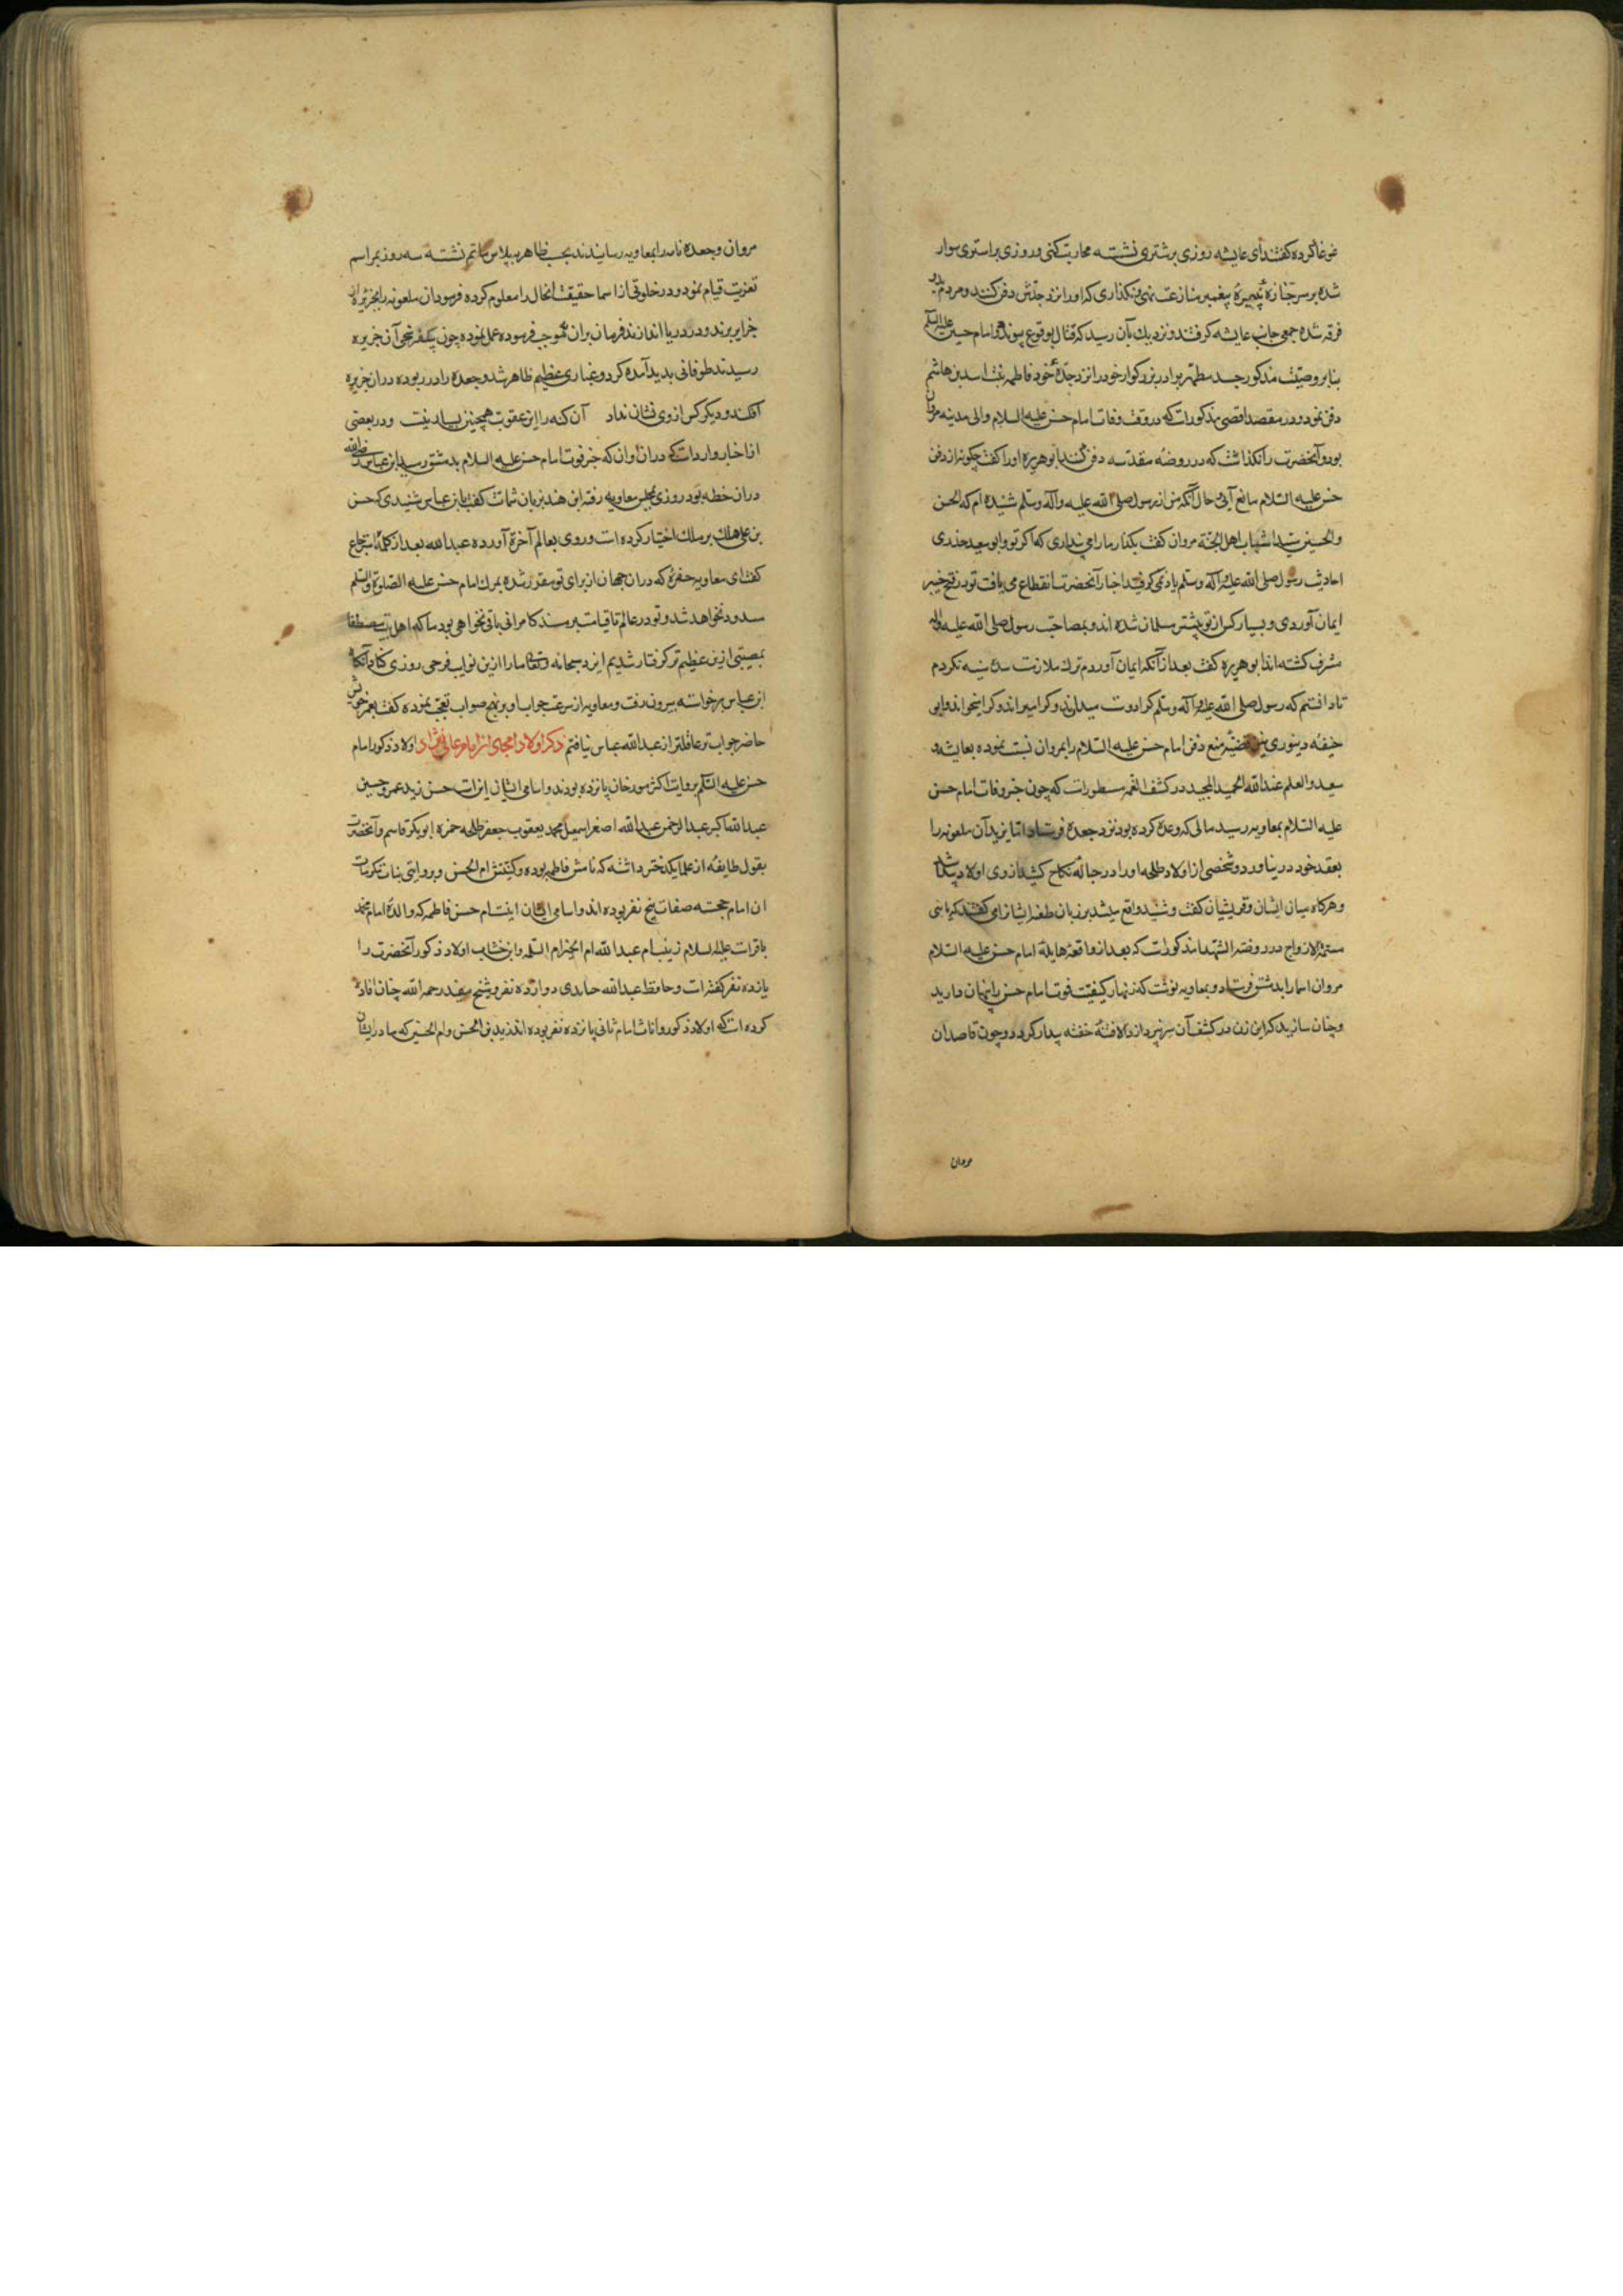 غوغا کرده گفتند ای عایشه روزی بر شتری نشسته محاربت کنی و روزی بر استری سوار
شده بر سر جنازه نبیره پیغمبر منازعت نمی نگذاری که او را نزد جدش دفن کنند و مردم دو
فرقه شده جمعی جانب عایشه گرفتند و نزدیك بآن رسید که قتال بوقوع پیوندد و امام حسین علیه السلم
بنابر وصیت مذکور جسد مطهر برادر بزرکوار خود را نزد جدهٔ خود فاطمه بنت اسد بن هاشم
دفن نمود و در مقصد اقصی مذکورات که در وقت وفات امام حسن علیه السلام والی مدینه مروان
بود و آنحضرت را نگذاشت که در روضهٔ مقدسه دفن کنند ابو هریره او را گفت چکونه از دفن
حسن علیه السلام مانع آیی و حال آنکه من از رسول صلی الله علیه وآله وسلم شنیده ام که الحسن
والحسین سیدا شباب اهل الجنة مروان گفت بگذار ما را می پنداری که اکر تو و ابو سعید خدری
احادیث رسول صلی الله علیه وآله وسلم یاد نمی کرفتید اخبار آنحضرت انقطاع می یافت تو در فتح خیبر
ایمان آوردی و بسیار کس از تو پیشتر مسلمان شده اند و بمصاحبت رسول صلی الله علیه وآله
مشرف کشته اند ابو هریره کفت بعد از آنکه ایمان آوردم ترك ملازمت سدهٔ سنیه نکردم
تا دانستم که رسول صلی الله علیه وآله وسلم کرا دوست میدارند و کرا میراند و کرا میخواند و ابی
حنیفه دینوری این قضیه منع دفن امام حسن علیه السلام را بمروان نسبت نموده بعایشه و
سعید والعلم عند الله الحمید المجید در کشف الغمه مسطورات که چون خبر وفات امام حسن
علیه السلام بمعاویه رسید مالی که وعده کرده بود نزد جعده فرستاد اما یزید آن ملعونه را
بعقد خود در نیاورد و شخصی از اولاد طلحه او را در حباله نکاح کشید از وی اولاد پیدا شد
و هرکاه میان ایشان و قریشیان کفت و شنید واقع میشد بر زبان طعنه ایشانرا می گفتند که یا بنی
مسمة الازواج در روضة الشهدا مذکورات که بعد از واقعهٔ هایلهٔ امام حسن علیه السلام
مروان اسما را بدمشق فرستاد و بمعاویه نوشت که زنهار کیفیت فوت امام حسن را پنهان دارید
و چنان سازید که این زن در کشف آن سر نپردازد والا فتنهٔ خفته بیدار کردد و چون قاصدان
مروان
مروان و جعده نامه را بمعاویه رسانیدند بحسب ظاهر بپلاس ماتم نشسته سه روز بمراسم
تعزیت قیام نمود و در خلوتی از اسما حقیقت الحال را معلوم کرده فرمود آن ملعونه را بجزیره از
جزایر برند و در دریا اندازند فرمان بران بموجب فرموده عمل نموده چون بیکفرسخی آن جزیره
رسیدند طوفانی بدید آمده کرد و غباری عظیم ظاهر شد و جعده را در ربوده در ان جزیره
افکند و دیکر کس از وی نشان نداد آن کنه را این عقوبت همچنین بسیار نیست و در بعضی
از اخبار واردات که در ان اوان که خبر فوت امام حسن علیه السلام بدمشق رسید ابن عباس رضی الله
در ان خطه بود روزی بمجلس معاویه رفته ابن هند بزبان شماتت کفت یا ابن عباس شنیدی که حسن
بن علی هلك بر ملك اختیار کرده است و روی بعالم آخرة آورده عبد الله بعد از کلمهٔ استرجاع
کفت ای معاویه حفرهٔ که در ان جهان از برای تو مقرر شده بمرك امام حسن علیه الصلوة والسلم
مسدود نخواهد شد و تو در عالم تا قیامت بر مسند کامرانی باقی نخواهی بود ما که اهل بیت مصطفا
بمصیبتی ازین عظیم تر کرفتار شدیم ایزد سبحانه وتعالی ما را ازین نوایب فرحی روزی کناد آنکاه
ابن عباس برخواسته بیرون رفت و معاویه از سرعت جواب او بر نهج صواب تعجب نموده کفت بعمر خویش
حاضر جواب تر و عاقلتر از عبد الله عباس نیافتم ذکر اولاد امجاد آن امام عالی نژاد اولاد ذکور امام
حسن علیه السلم بروایت اکثر مورخان پانزده بودند و اسامی ایشان اینرات حسن زید عمرو حسین
عبد الله اکبر عبد الرحمن عبد الله اصغر اسمعیل محمد یعقوب جعفر طلحه حمزه ابو بکر قاسم و آنحضرت
بقول طایفه از علما یکدختر داشته که نامش فاطمه بوده و کنیتش ام الحسن و بروایتی بنات مکرمات
ان امام خجسته صفات پنج نفر بوده اند و اسامی ایشان اینست ام حسن فاطمه که والدهٔ امام محمد
باقرات علیه السلام زینب ام عبد الله ام الخیر ام السلمه و ابن خشاب اولاد ذکور آنحضرت را
یازده نفر کفته است و حافظ عبد الله حنابدی دوازده نفر و شیخ مفید رحمه الله چنان افاده
کرده است که اولاد ذکور و اناث امام ثانی پانزده نفر بوده اند زید بن الحسن و ام الحسین که مادر ایشان